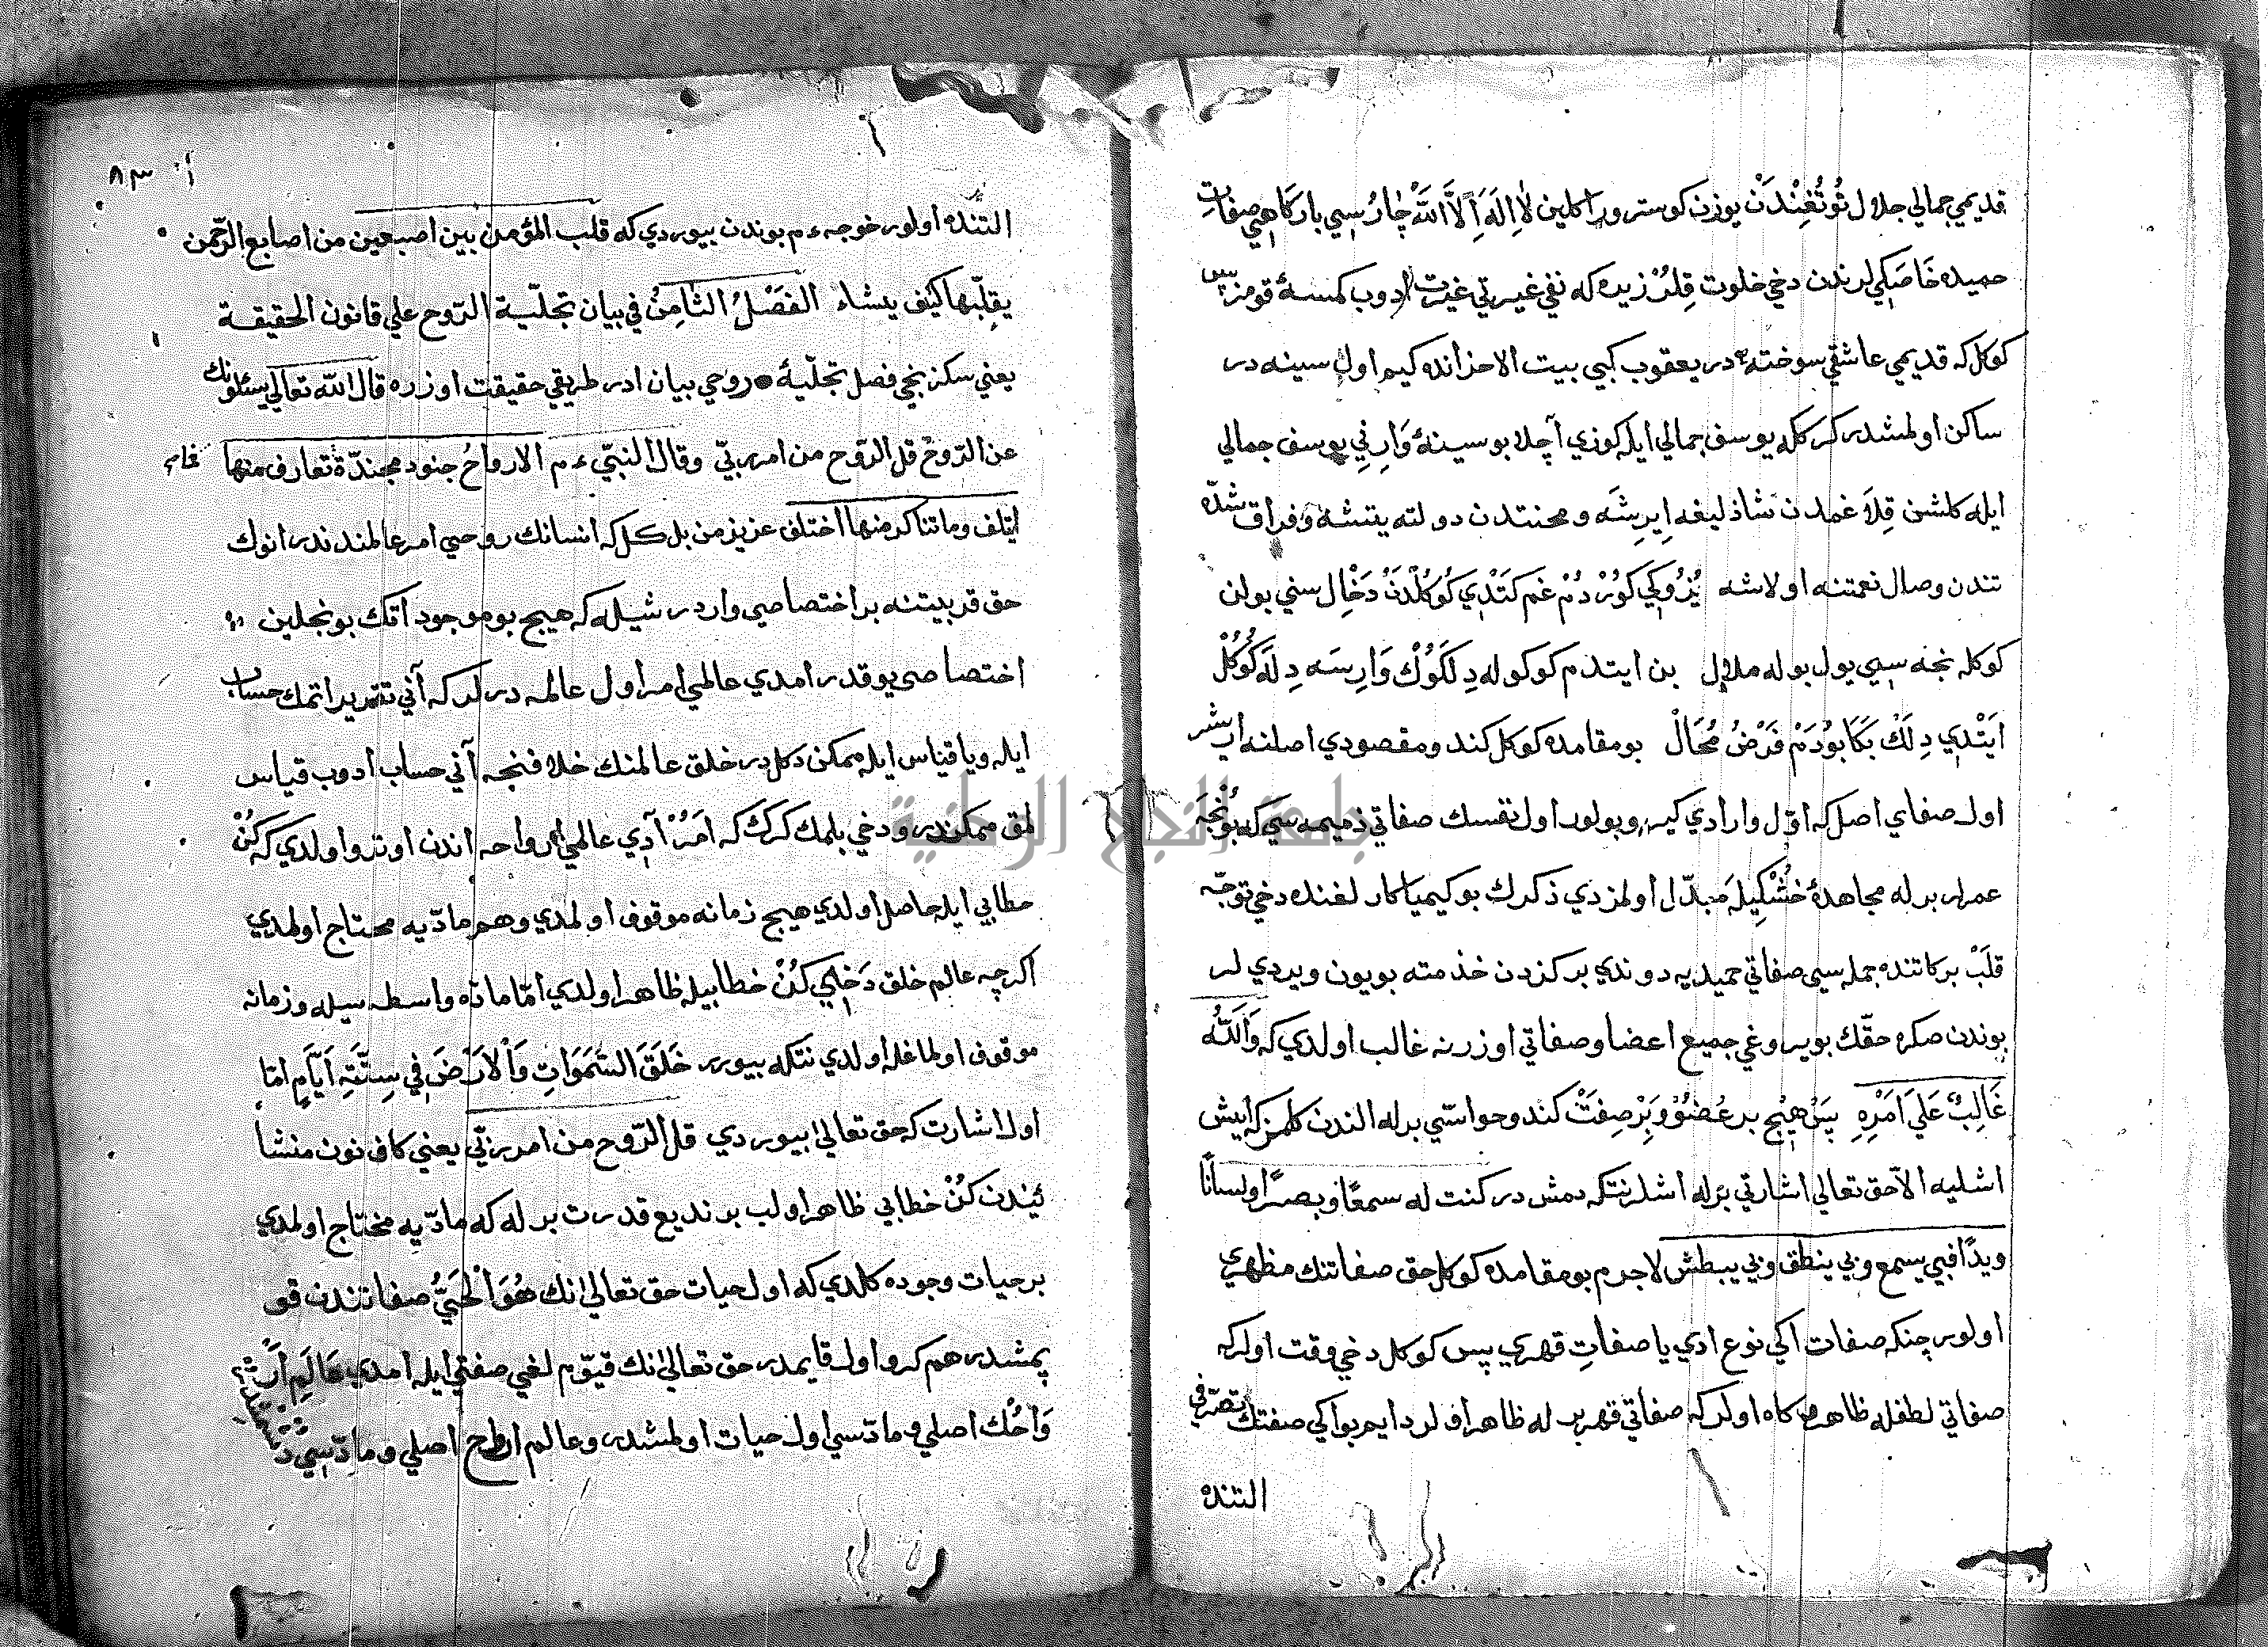 قديمي جمالي جلال تُوتُغِنْدَنْ يوزن كوستر ورا كلين لَا اِلَهَ اِلَّا اللّٰهْ چارُ سي باركاهي صفات
حميده خاصكي لرندن دخي خلوت قِلُرْ زيده كه نفي غيرتي غيرت ادوب كمسهٔ قومز پس
كوكل كه قديمي عاشقي سوخته در يعقوب كبي بيت الاحزانده كيم اول سينه در
ساكن اولمشدر كركله يوسف جمالي ايله كوزي آچلا بو سينهٔ وَارِني يوسف جمالي
ايله كلشن قِلَا غمدن شاذليغه اِيرِشَه و محنتدن دولته يتشه و فراق شده
تندن وصال نعمتنه اولاشه يُزُوكي كَوُرْدُمْ غم كَتْدي كَوُكُلْدَنْ دَخِال سني بولن
كوكله نجه سي يول بوله ملال بن ايتدم كوكوله دِلكَوُكْ وَارِسَه دِلَه كَوُكُلْ
ايَتْدي دِلَكْ بَكَا بُودَمْ فَرْضُ مُحَالْ بو مقامده كوكل كند و مقصودي اصلنه ايرشر
اول صفاي اصل كه اوّل وارادي كيرو بولور اول نفسك صفاتي ذميمه سي كه بُونْجَه
عمرلر برله مجاهدهٔ خُشْكِيلَه مبدّل اولمزدي ذكرك بو كيميا كار لغنده دخي توجّه
قلبْ بركاتنده جمله سي صفاتي حميديه دوندي بر كزدن خذمته بويون ويردي لر
بوندن صكره حقّك بويروغي جميع اعضا و صفاتي اوزرنه غالب اولدي كه وَاللّٰهُ
غَالِبٌ عَلَي اَمْرِهِ پسْ هيج بر عُضْوُ وَبِرْ صِفَتْ كندو حواسّي برله الندن كلمز كه ايش
اشليه الّا حق تعالي اشارتي بْرله اشلر نتكه دمش در كنت له سمعًا و بصرًا و لسانًا
ويدًا فبي يسمع وبي ينطق وبي يبطش لا جرم بو مقامده كوكل حق صفاتنك مظهري
اولور چنكه صفات اكي نوع ادي يا صفاتِ قهري پس كوكل دخي وقت اولر كه
صفاتي لطفله ظاهر كاه اولر كه صفاتي قهر برله ظاهر اولر دايم بو اكي صفتك تصرّفي
التنده
٨٣
التنده اولور خوجه ءم بوندن بيوردي كه قلب المؤمن بين اصبعين من اصابع الرحمن
يقلّبها كيف يشاء الفَصْلُ الثامِنُ في بيان تجلّية الرّوح علي قانون الحقيقة
يعني سكزنجي فصل تجليهٔ روحي بيان ادر طريقي حقيقت اوزره قال الله تعالي يسئلونك
عن الرّوح قل الرّوح من امر ربّي وقال النبيّ ءم الارواحُ جنود مجندّة تعارف منها فما
ايتلف وما تناكر منها اختلف عزيز من بل كل كه انسانك روحي امر عالمندندر انوك
حق قربيتنه بر اختصاصي واردر شيله كه هيج بو موجوداتك بونجلين
اختصاصي يوقدر امدي عالمي امر اول عالمه درلر كه آني تقرير اتمك حساب
ايله ويا قياس ايله ممكن دكلدر خلق عالمنك خلافنجه آني حساب ادوب قياس
لمق ممكندر و دخي بلمك كرك كه امَرْ آدي عالمي ارواحه اندن اوترو اولدي كه كُنْ
خطابي ايله حاصل اولدي هيج زمانه موقوف اولمدي وهم مادّيه محتاج اولمدي
اكرچه عالم خلق دَخاِي كُنْ خطابيله ظاهر اولدي امّا مادّه واسطه سيله و زمانه
موقوف اولماغله اولدي نتكه بيورر خَلَقَ السَّمَوَاتِ وَالْاَرْضَ فِي سِتَّةِ اَيَّامٍ امّا
اول اشارت كه حق تعالي بيوردي قل الرّوح من امر ربّي يعني كاف نون منشأ
ئيندن كُنْ خطابي ظاهر اولب بر نديع قدرت برله كه مادّيه محتاج اولمدي
بر حيات وجوده كلدي كه اول حيات حق تعالي نك هُوَ الْحَيُّ صفاتندن قو
پمشدر هم كرو اول قايمدر حق تعالي نك قيّوم لغي صفتي ايله امدي عالم
وَاحُك اصلي و مادّسي اول حيات اولمشدر و عالم ارواح اصلي و مادّسي دُ